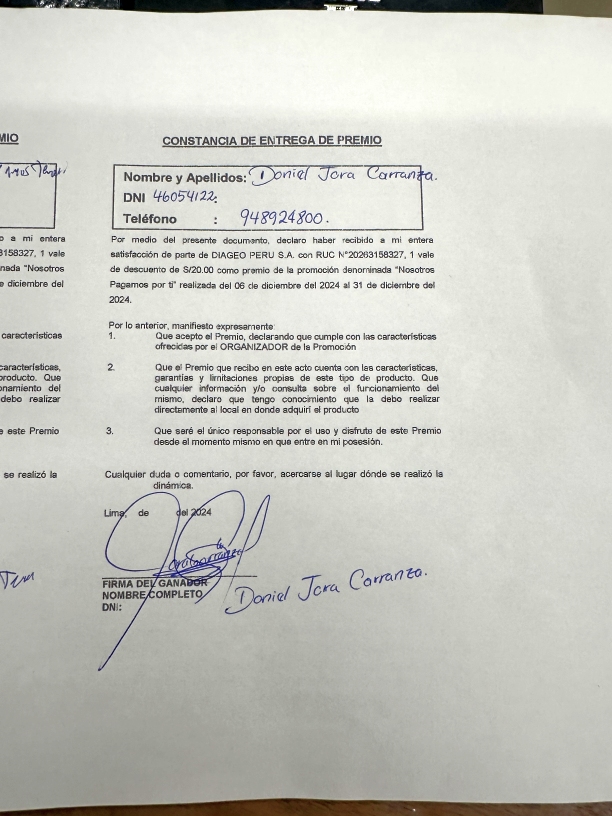 MIO
o a mi entera
3158327, 1 vale
nada "Nosotros
e diciembre del
características
características,
roducto. Que
onamiento del
debo realizar
e este Premio
se realizó la
CONSTANCIA DE ENTREGA DE PREMIO
Nombre y Apellidos: Daniel Jara Carranza.
DNI 46054122.
Teléfono : 948924800.
Por medio del presente documento, declaro haber recibido a mi entera
satisfacción de parte de DIAGEO PERU S.A. con RUC N°20263158327, 1 vale
de descuento de S/20.00 como premio de la promoción denominada "Nosotros
Pagamos por ti" realizada del 06 de diciembre del 2024 al 31 de diciembre del
2024.
Por lo anterior, manifiesto expresamente
1. Que acepto el Premio, declarando que cumple con las características
ofrecidas por el ORGANIZADOR de la Promoción
2. Que el Premio que recibo en este acto cuenta con las características,
garantías y limitaciones propias de este tipo de producto. Que
cualquier información y/o consulta sobre el funcionamiento del
mismo, declaro que tengo conocimiento que la debo realizar
directamente al local en donde adquirí el producto
3. Que seré el único responsable por el uso y disfrute de este Premio
desde el momento mismo en que entre en mi posesión.
Cualquier duda o comentario, por favor, acercarse al lugar dónde se realizó la
dinámica.
Lima, de del 2024
FIRMA DEL GANADOR
NOMBRE COMPLETO Daniel Jara Carranza.
DNI: